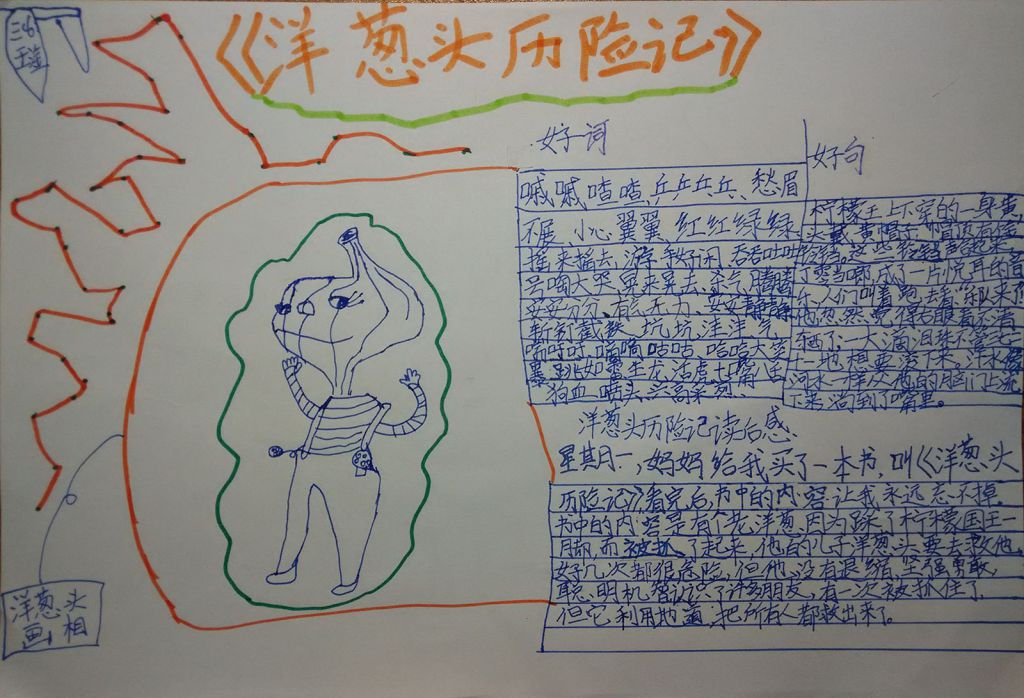 《洋葱头历险记》
三
好词
嘁嘁喳喳、乒乒乓乓、愁眉
不展、小心翼翼、红红绿绿
摇来摇去、游手好闲、吞吞吐吐
号啕大哭、晃来晃去、杀气腾腾
安安分分、有气无力、安安静静
斩钉截铁、坑坑洼洼、气
喘吁吁、嘀嘀咕咕、哈哈大笑
墨如墨、生龙活虎、七嘴八舌
狗血喷头、兴高采烈
好句
柠檬王上下穿的一身黄,
头戴黄帽子,帽顶有
铃铛。这些铃铛
丁零当啷,成了一片悦耳的音
乐,人们叫着跑去看:乐队来了
他忽然觉得右眼看不清
东西了:一大滴泪珠不管
一地想要滚下来。汗水像
河水一样从他的脑门上流
下来,淌到了嘴里。
洋葱头历险记读后感
星期一,妈妈给我买了一本书,叫《洋葱头
历险记》看完后,书中的内容让我永远忘不掉。
书中的内容是有个老洋葱,因为踩了柠檬国王一
脚,而被抓了起来,他的儿子洋葱头要去救他,
好几次都很危险,但他没有退缩,坚强勇敢,
聪明机智认识了许多朋友,有一次被抓住了,
但它利用地道,把所有人都救出来了。
洋葱头
画相